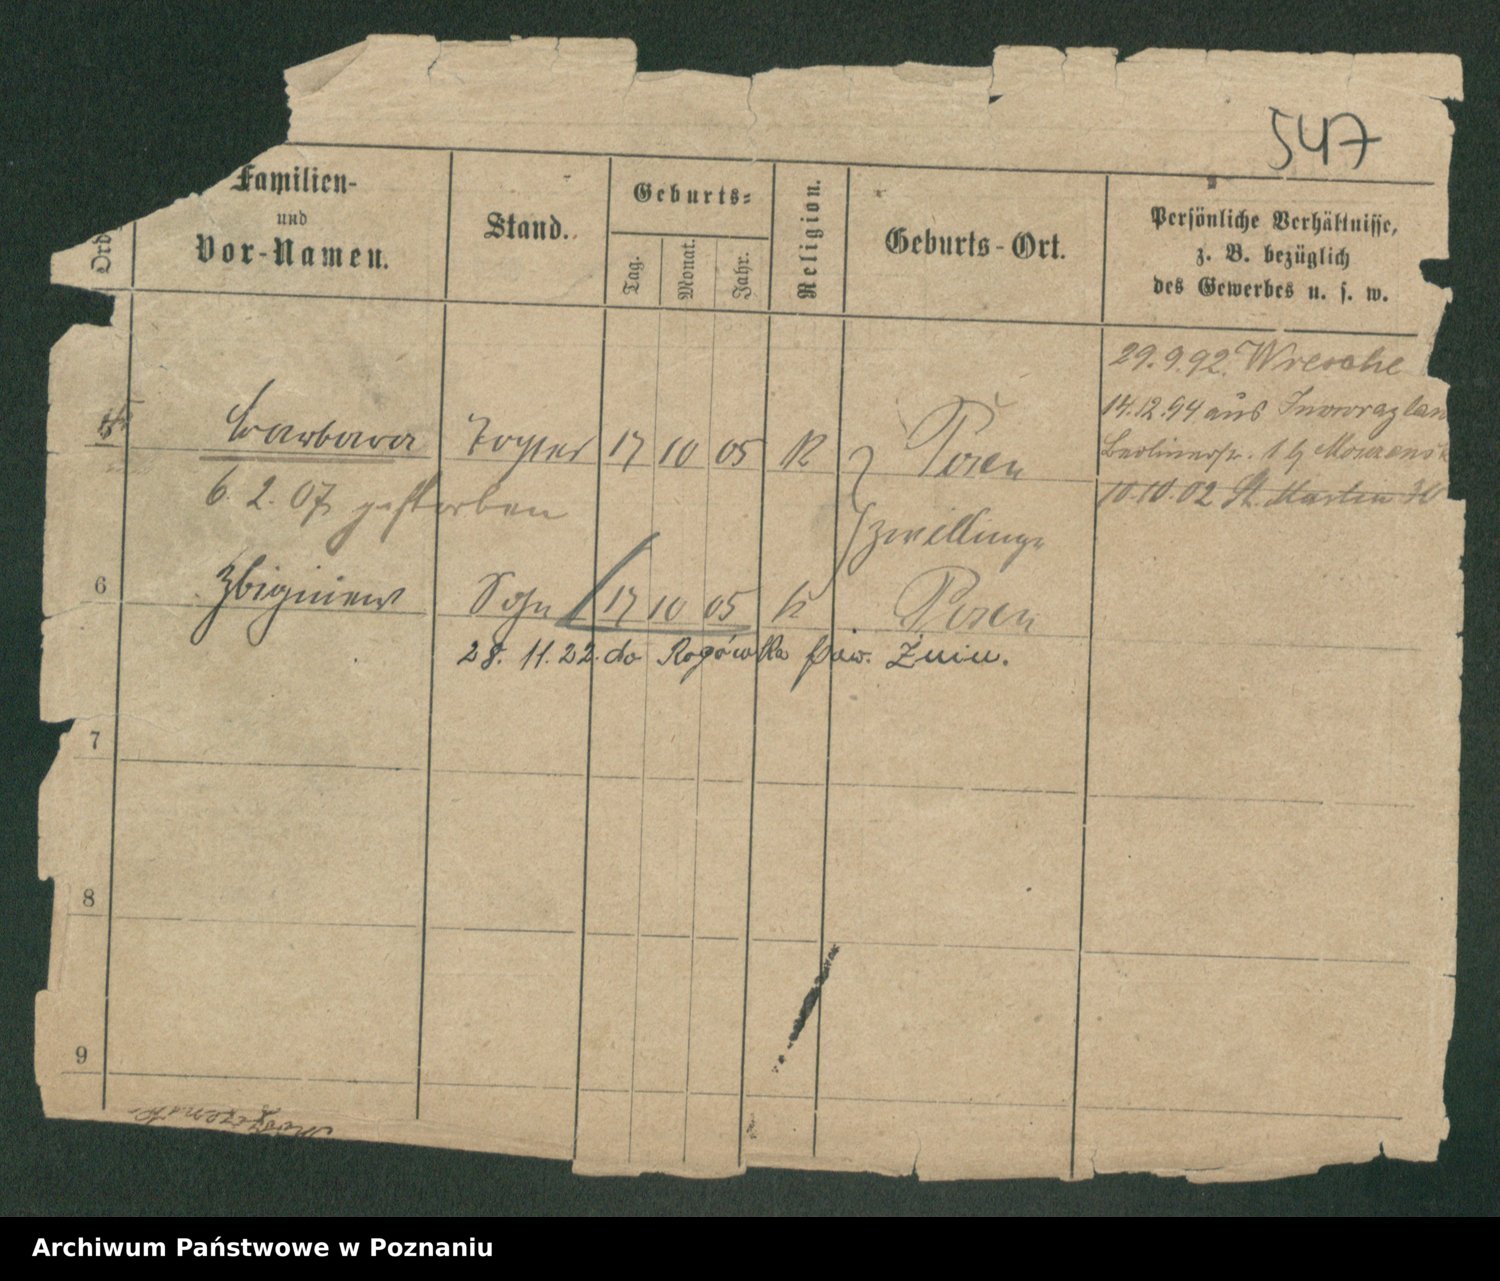 547
Ord
Familien-
und
Vor-Namen.
Stand.
Geburts-
Tag.
Monat.
Jahr.
Religion.
Geburts-Ort.
Persönliche Verhältnisse,
z. B. bezüglich
des Gewerbes u. s. w.
29.9.92. Wresche
14.12.94 aus Inowrazlaw
Berlinerstr.
10.10.02 St. Martin
5 Barbara Tochter 17 10 05 K Posen
6. 2. 07 gestorben
Zwillinge
6 Zbigniew Sohn 17 10 05 K Posen
28. 11. 22. do Rogówka pow. Żnin.
7
8
9
Archiwum Państwowe w Poznaniu